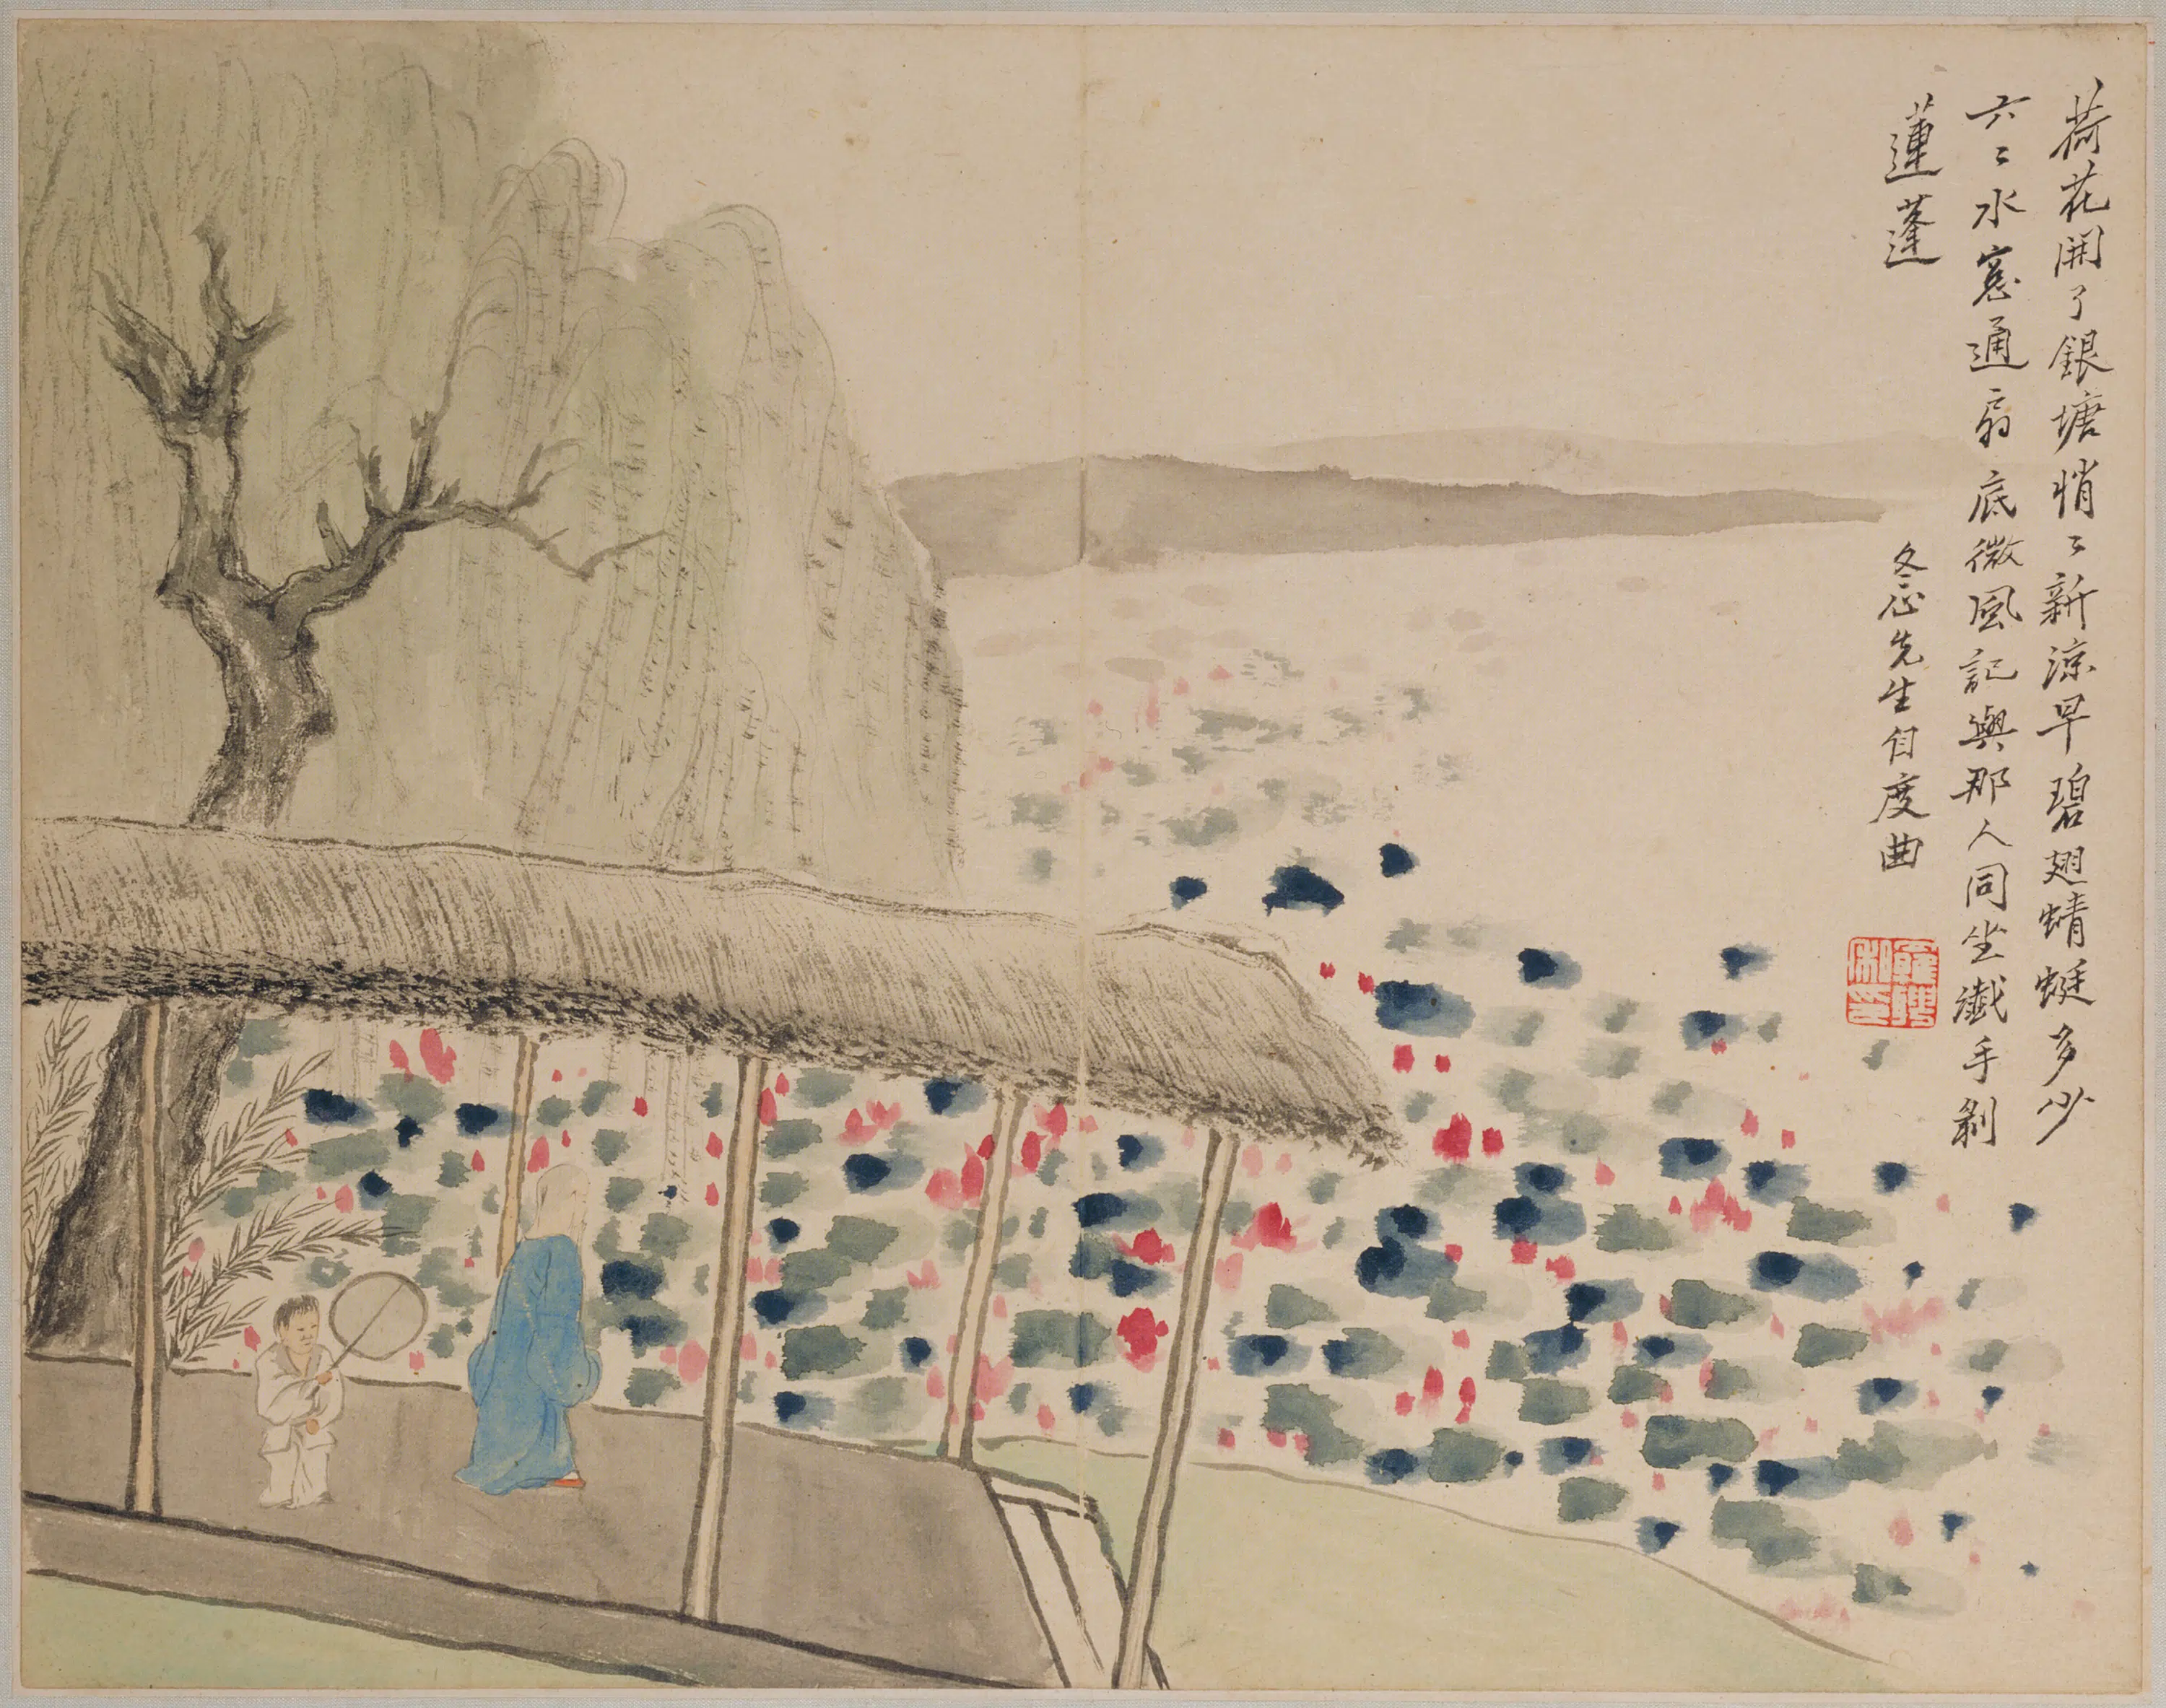 荷花開了銀塘悄〻新涼早碧翅蜻蜓多少
六〻水窓通扇底微風記與那人同坐纖手剝
蓮蓬
冬心先生自度曲
羅聘私印